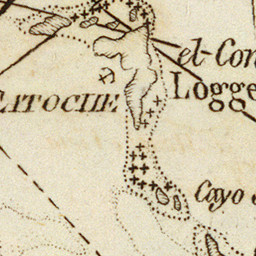 el-Con
Logge
CATOCHE
Cayo